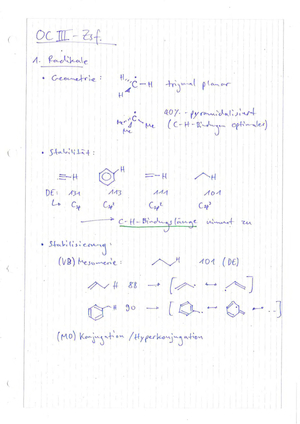 OC III - Zsf.
1. Radikale
• Geometrie: H H C H trigonal planar
Me Me C Me 90% pyramidalisiert
(C-H-Bindungen optimales)
• Stabilität:
H H H H
DE: 131 113 111 101
Csp Csp² Csp² Csp³
C-H-Bindungslänge nimmt zu
• Stabilisierung:
(VB) Mesomerie: H 101 (DE)
H 88 → [ ↔ ]
H 90 → [ ↔ ↔ ..]
(MO) Konjugation / Hyperkonjugation